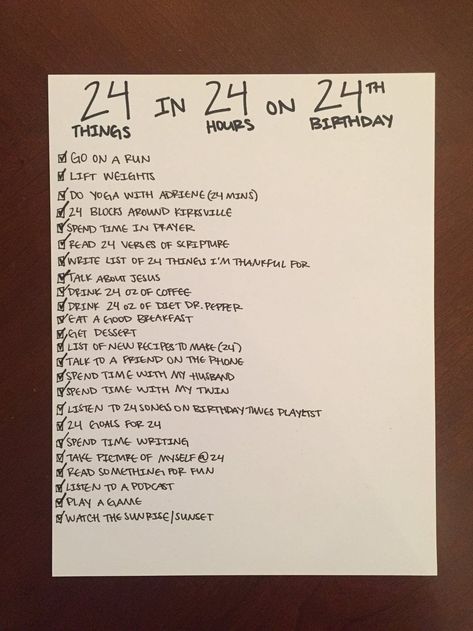 24 IN 24 ON 24TH
THINGS HOURS BIRTHDAY
GO ON A RUN
LIFT WEIGHTS
DO YOGA WITH ADRIENE (24 MINS)
24 BLOCKS AROUND KIRKSVILLE
SPEND TIME IN PRAYER
READ 24 VERSES OF SCRIPTURE
WRITE LIST OF 24 THINGS I'M THANKFUL FOR
TALK ABOUT JESUS
DRINK 24 OZ OF COFFEE
DRINK 24 OZ OF DIET DR. PEPPER
EAT A GOOD BREAKFAST
GET DESSERT
LIST OF NEW RECIPES TO MAKE (24)
TALK TO A FRIEND ON THE PHONE
SPEND TIME WITH MY HUSBAND
SPEND TIME WITH MY TWIN
LISTEN TO 24 SONGS ON BIRTHDAY TUNES PLAYLIST
24 GOALS FOR 24
SPEND TIME WRITING
TAKE PICTURE OF MYSELF @ 24
READ SOMETHING FOR FUN
LISTEN TO A PODCAST
PLAY A GAME
WATCH THE SUNRISE/SUNSET